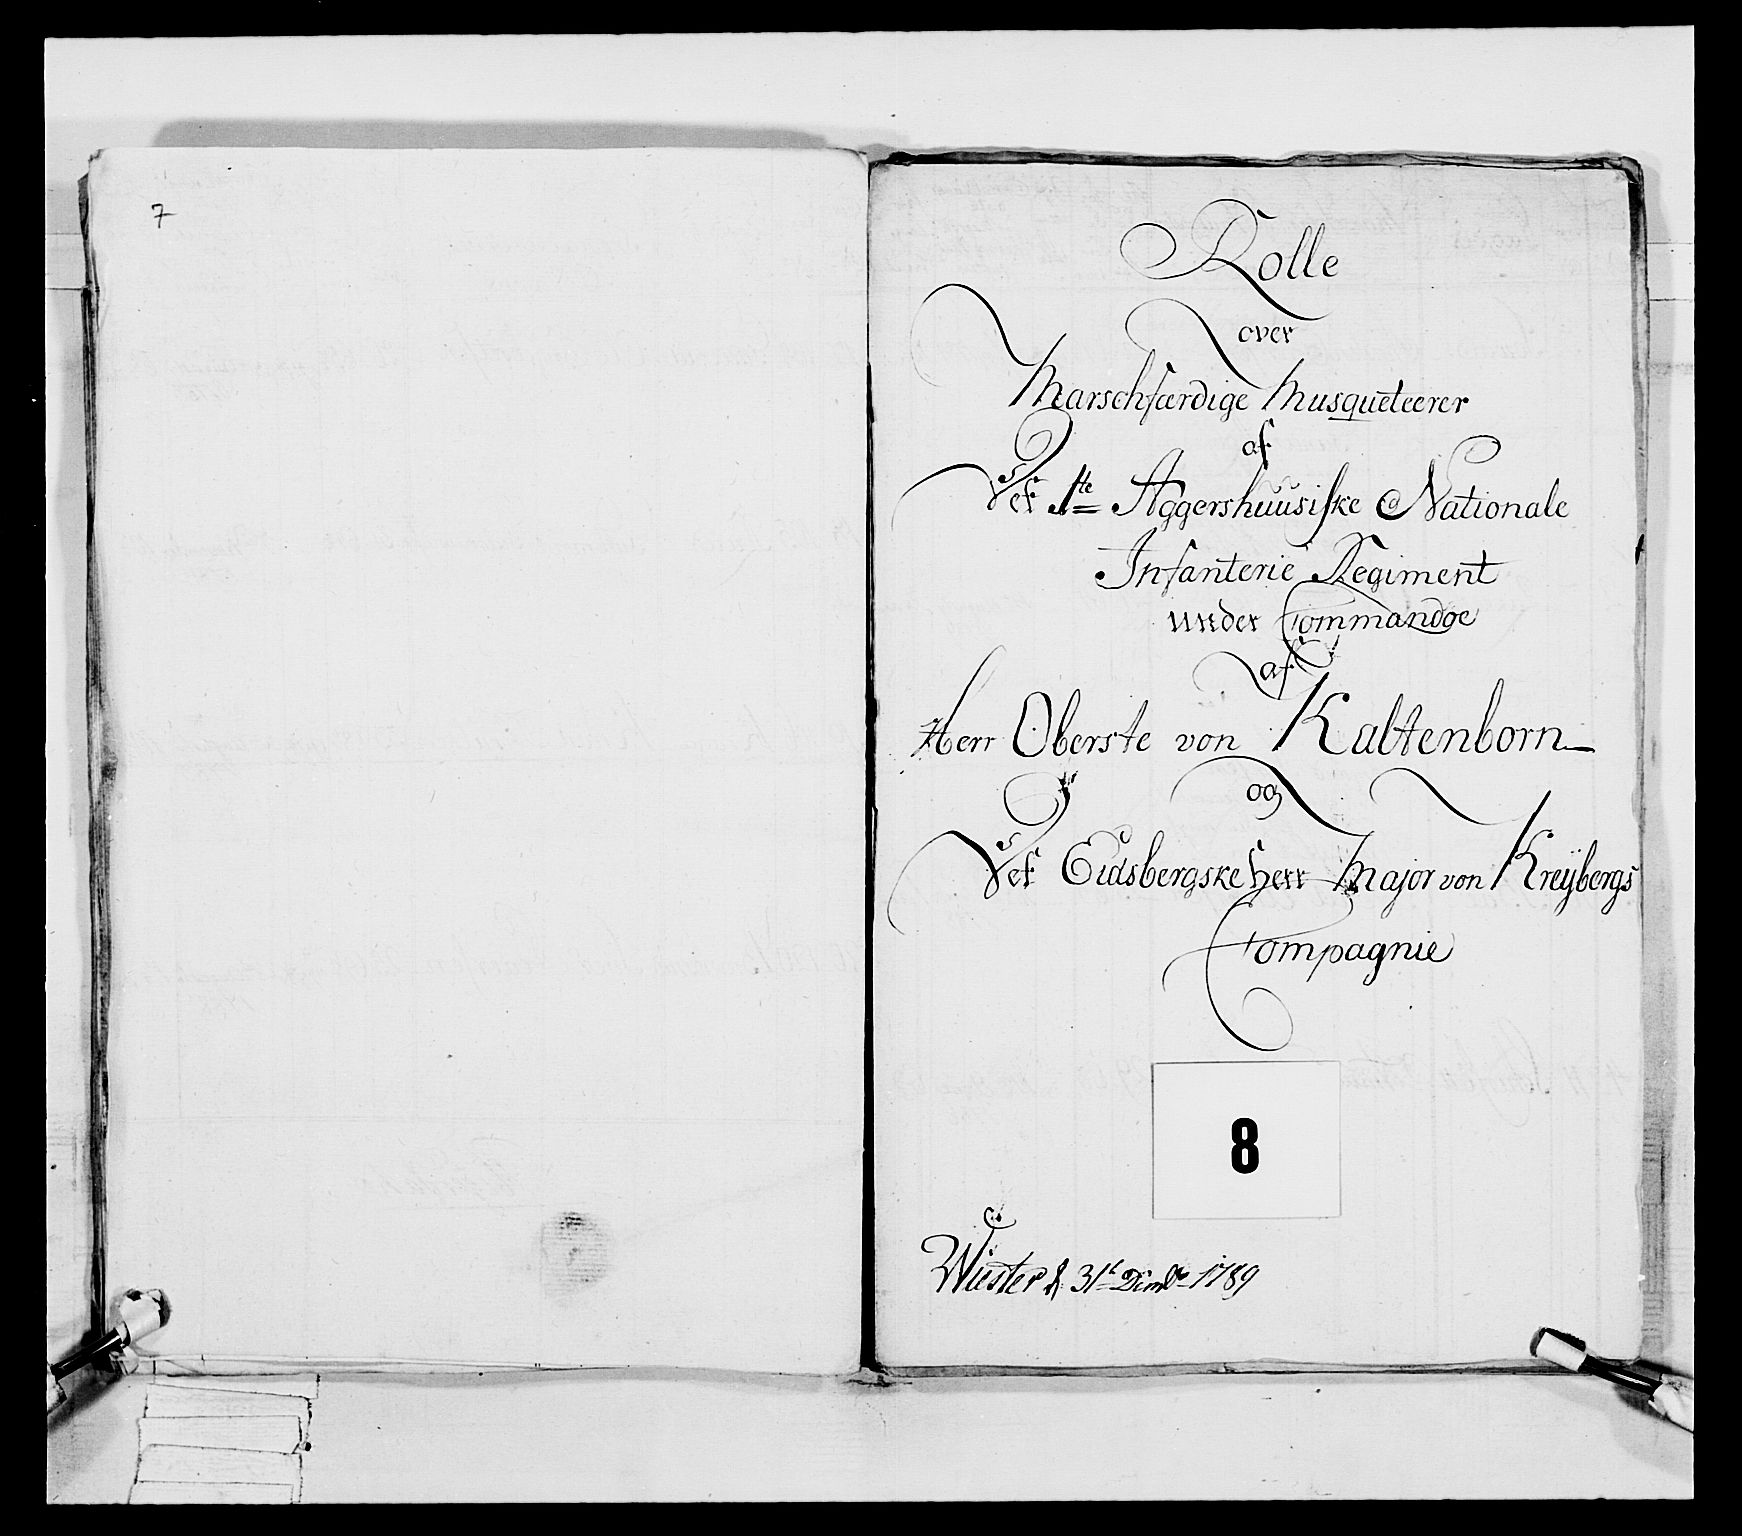 7
Rolle
over
Marschfærdige Musqueteerer
af
Det 1te Aggershuusiske Nationale
Infanterie Regiment
under Commandoe
af
Herr Oberste von Kaltenborn
og
Det Eidsbergske Herr Major von Kreÿbergs
Compagnie
8
d. 31t Decmbr 1789